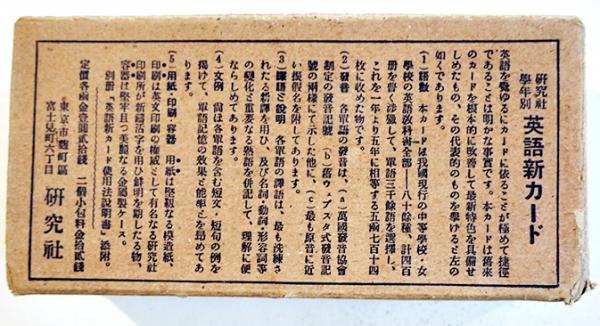 研究社
學年別
英語新カード
英語を覺ゆるにカードに依ることが極めて捷徑
であることは明かな事實です。本カードは舊來
のカードを根本的に改善して最新特色を具備せ
しめたもの、その代表的のものを擧げると左の
如くであります。
(1) 語數 本カードは我國現行の中等學校・女
學校の英語敎科書全部――八十餘種、計四百
册を普く涉獵して、單語三千餘語を選擇し、
これを一年より五年に相當する五函七百十四
枚に收めた物です。
(2) 發音 各單語の發音は、(a) 萬國發音協會
制定の發音記號 (b) 舊ウェブスタ式發音記
號の兩樣にて示した他に、(c) 最も原音に近
い振假名を附してあります。
(3) 譯語と說明 各單語の譯語は、最も洗練さ
れたる標譯を用ひ、及び名詞・動詞・形容詞等
の變化と重要なる熟語を併記して、理解に便
ならしめてあります。
(4) 文例 尙ほ各單語を含む短文・短句の例を
揭げて、單語記憶の效果と能率とを昂めてあ
ります。
(5) 用紙・印刷・容器 用紙は堅靱なる模造紙、
印刷は英文印刷の權威として有名なる研究社
印刷所が新鑄活字を用ひ鮮明を期したる物、
容器は堅牢且つ美麗なる金屬製ケース。
別册「英語新カード使用法說明書」添附。
定價各函金壹圓貳拾錢 二個小包料金拾貳錢
東京市麴町區
富士見町六丁目
研究社